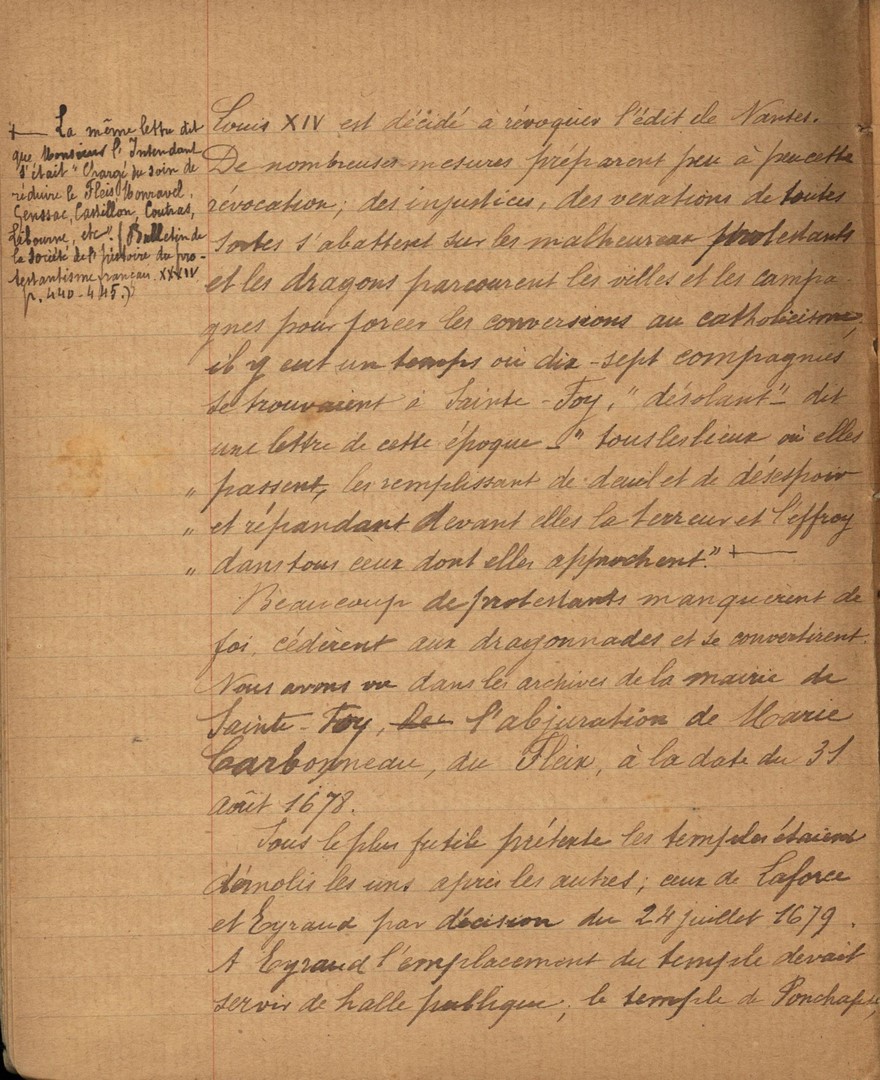 +— La même lettre dit
que Monsieur l'Intendant
s'était "Chargé du soin de
réduire le Fleix, Monravel,
Genssac, Castillon, Coutras,
Libourne, etc" (Bulletin de
la Société de l'histoire du pro-
testantisme français XXXIV
p. 440-445.)
Louis XIV est décidé à révoquer l'édit de Nantes.
De nombreuses mesures préparent peu à peu cette
révocation; des injustices, des vexations de toutes
sortes s'abattent sur les malheureux protestants
et les dragons parcourent les villes et les campa-
gnes pour forcer les conversions au catholicisme;
il y eut un temps où dix-sept compagnies
se trouvaient à Sainte-Foy, "désolant" – dit
une lettre de cette époque – "tous les lieux où elles
" passent, les remplissant de deuil et de désespoir
" et répandant devant elles la terreur et l'effroy
" dans tous ceux dont elles approchent." +—
Beaucoup de protestants manquèrent de
foi, cédèrent aux dragonnades et se convertirent.
Nous avons vu dans les archives de la mairie de
Sainte-Foy, l'abjuration de Marie
Carbonneau, du Fleix, à la date du 31
août 1678.
Sous le plus futile prétexte les temples étaient
démolis les uns après les autres; ceux de Laforce
et Eyraud par décision du 24 juillet 1679.
A Eyraud l'emplacement du temple devait
servir de halle publique; le temple de Ponchapt,